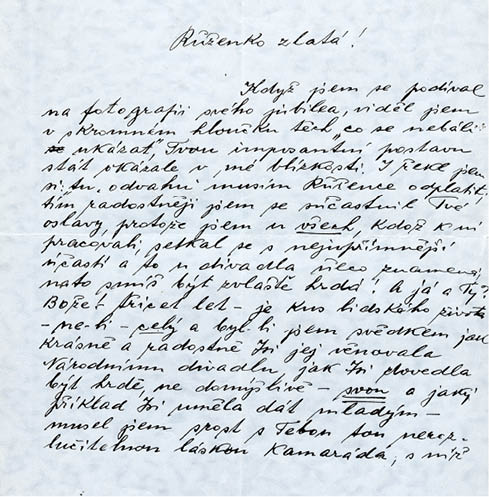 Růženko zlatá!
Když jsem se podíval
na fotografii svého jubilea, viděl jsem
v skromném hloučku těch „co se nebáli
se ukázat", Tvou imposantní postavu
stát okázale v mé blízkosti. I řekl jsem
si: tu odvahu musím Růžence odplatit,
tím radostněji jsem se súčastnil Tvé
oslavy, protože jsem u všech, kdož k ní
pracovali, setkal se s nejupřímnější
účastí a to u divadla něco znamená,
nato smíš být zvláště hrdá! A já a Ty?
Bože! třicet let – je kus lidského života
– ne-li – celý a byl-li jsem svědkem jak
krásně a radostně Jsi jej věnovala
Národnímu divadlu, jak Jsi dovedla
být hrdě, ne domýšlivě – svou a jaký
příklad Jsi uměla dát mladým –
musel jsem srůst s Tebou tou neroz-
lučitelnou láskou kamaráda, s níž